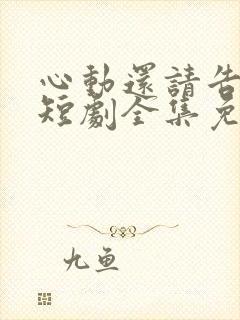 心動還請告
短劇全集免
九鱼